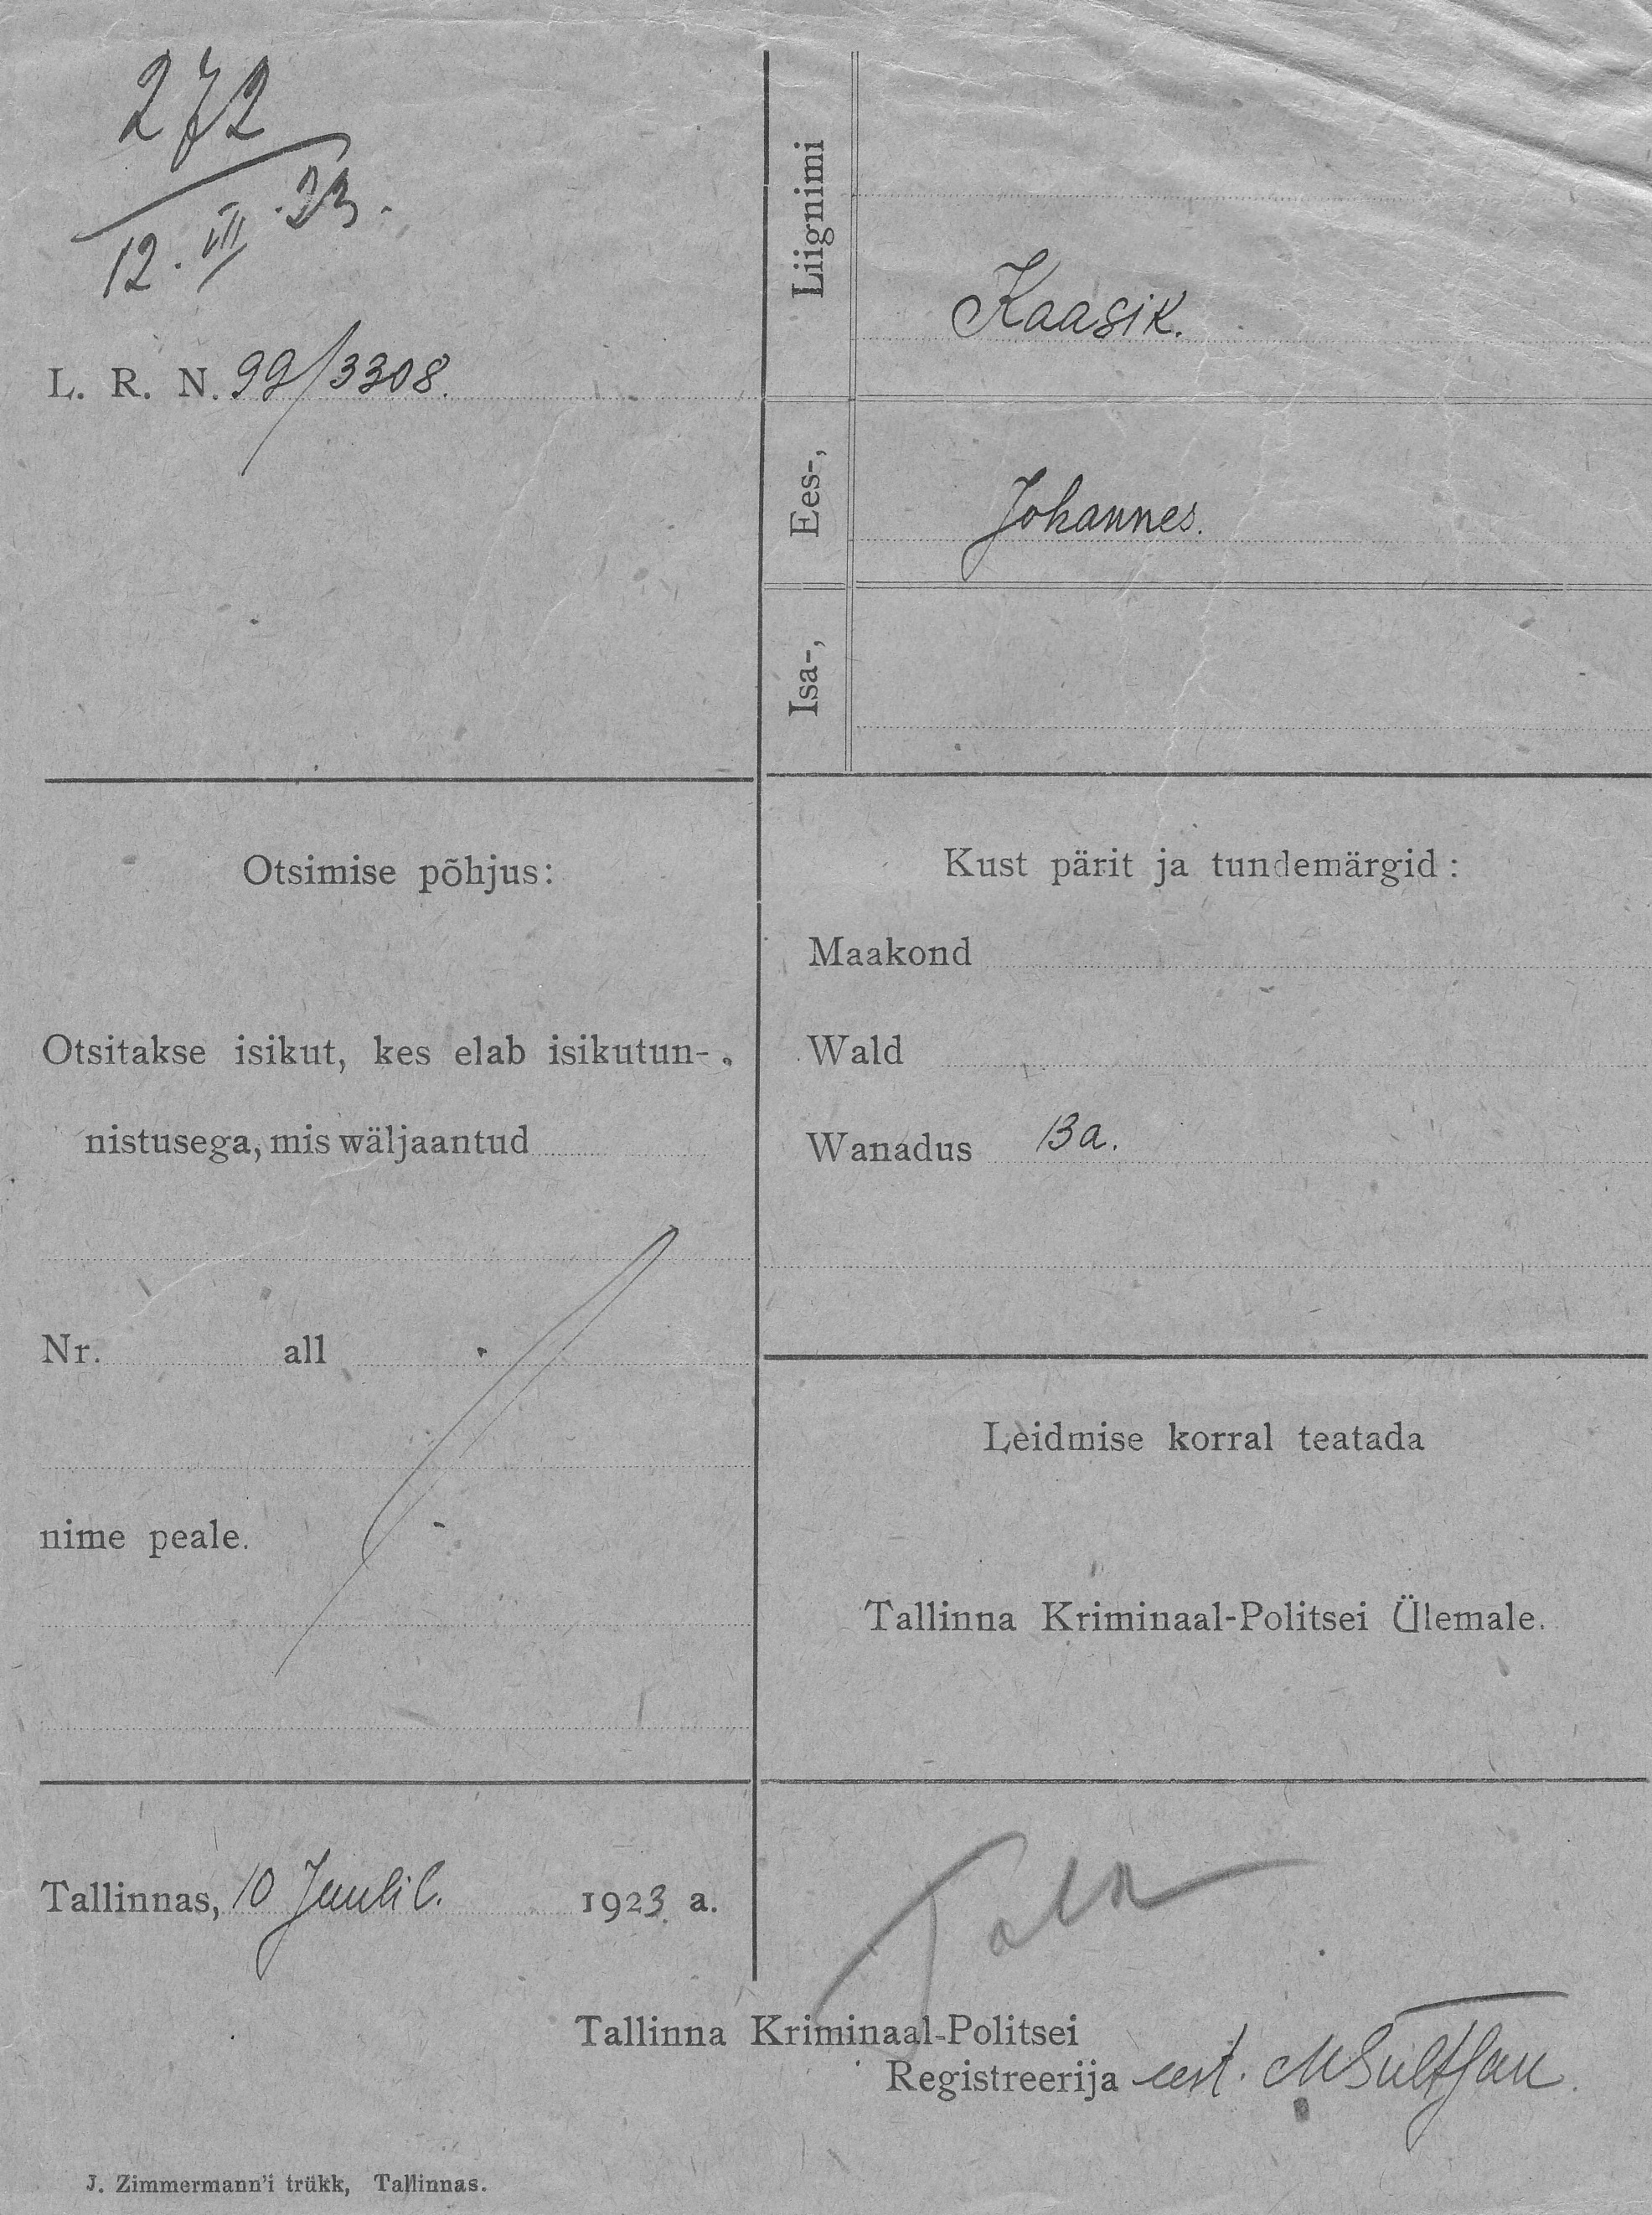 272
12. VII. 23.
L. R. N. 99/3308.
Liignimi
Kaasik.
Ees-,
Johannes.
Isa-,
Otsimise põhjus:
Otsitakse isikut, kes elab isikutun-
nistusega, mis wäljaantud
Nr. all
nime peale.
Kust pärit ja tundemärgid:
Maakond
Wald
Wanadus 13 a.
Leidmise korral teatada
Tallinna Kriminaal-Politsei Ülemale.
Tallinnas, 10 Juulil. 1923 a.
Tallinna Kriminaal-Politsei
Registreerija eest.
J. Zimmermann'i trükk, Tallinnas.